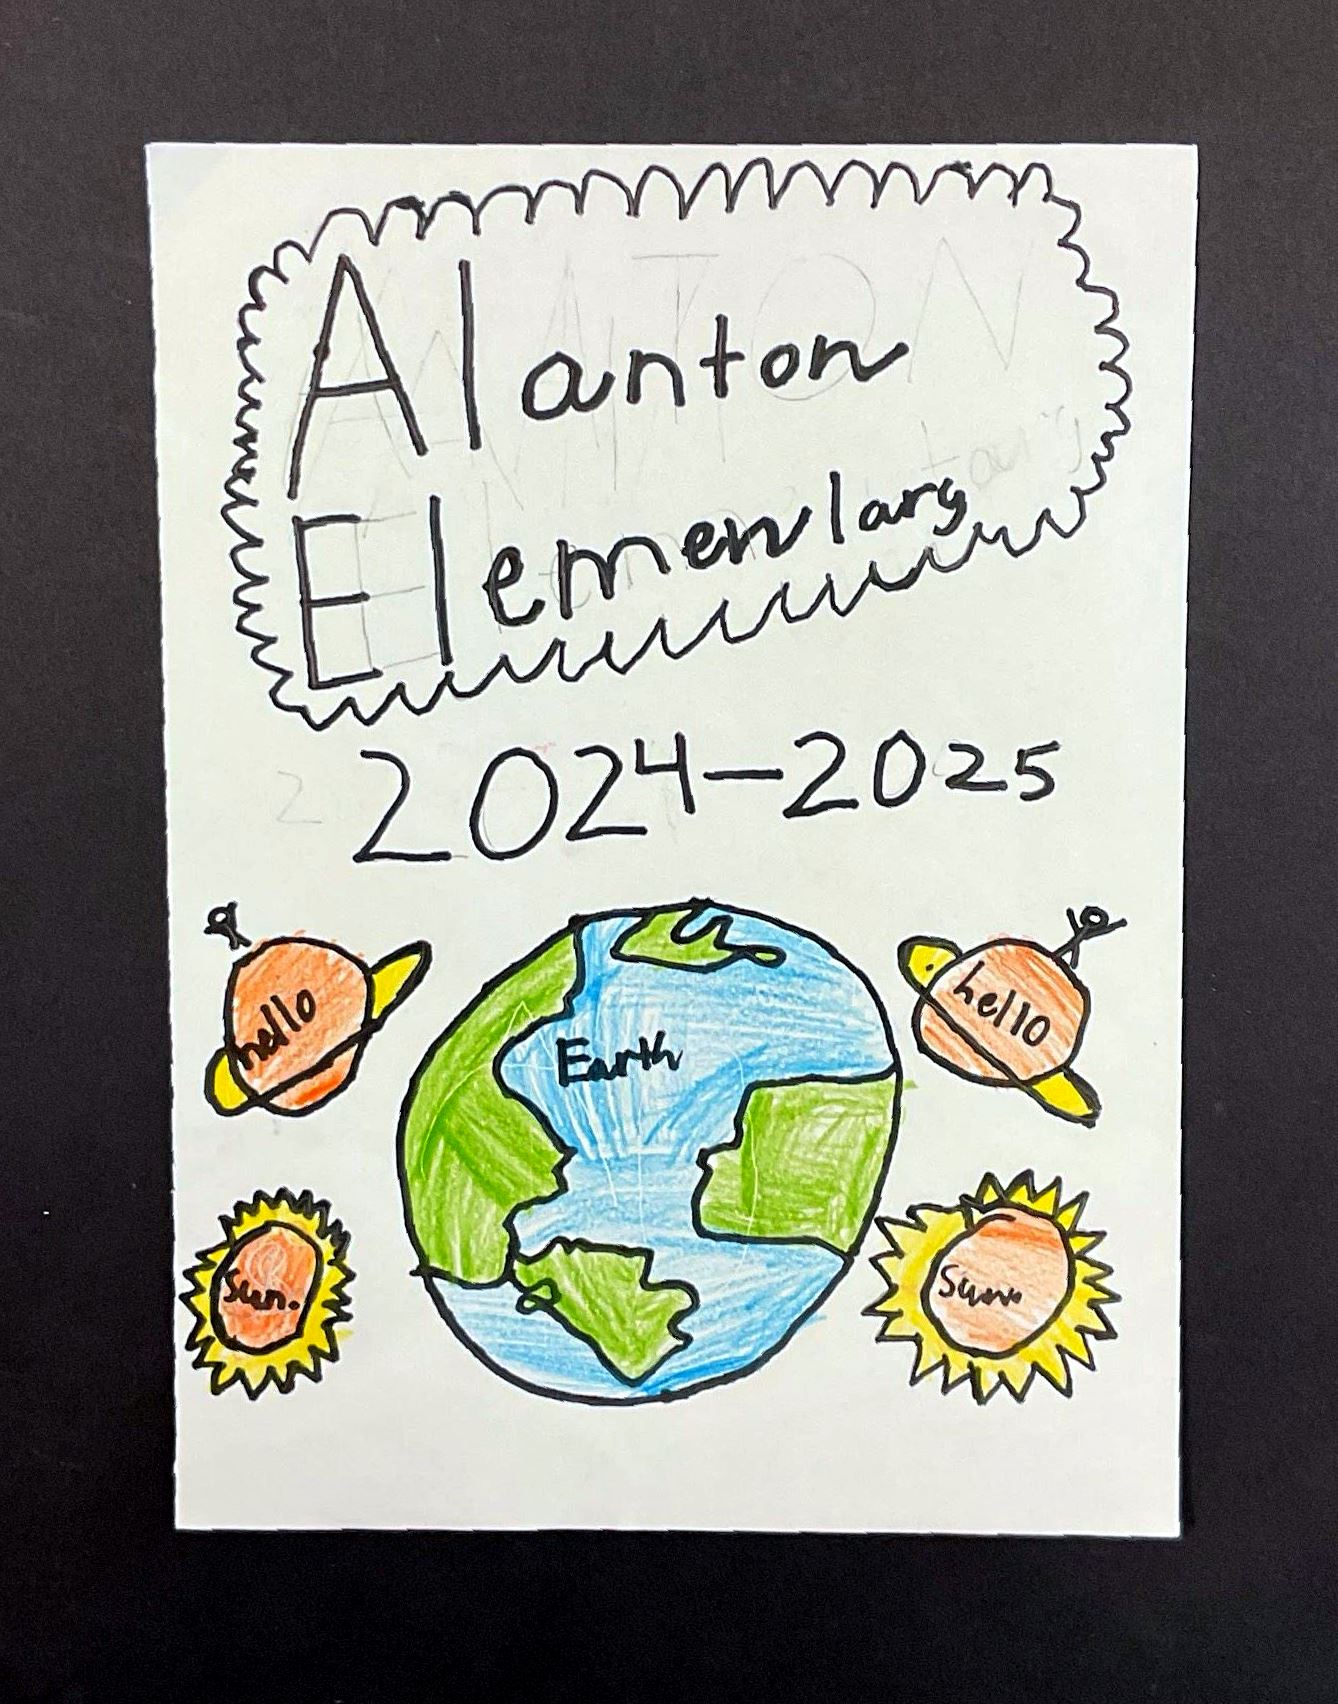 Alanton
Elementary
2024-2025
hello
hello
Earth
Sun.
Sun.